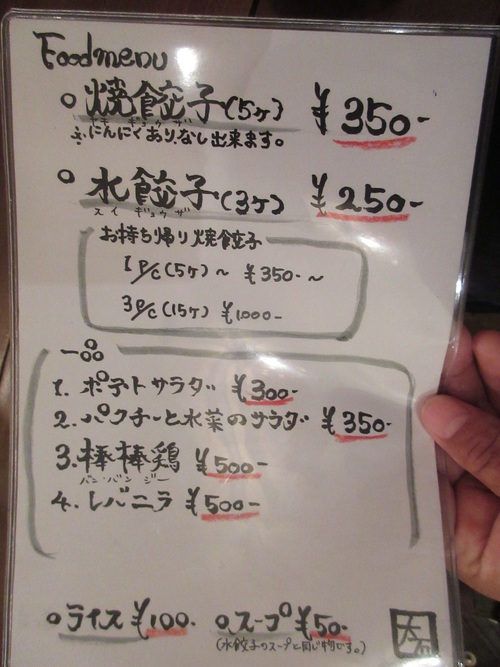 Food menu
○ 焼餃子(5ケ) ¥350-
ヤキギョウザ
※にんにくあり、なし出来ます。
○ 水餃子(3ケ) ¥250-
スイギョウザ
お持ち帰り焼餃子
1P/C(5ケ)~ ¥350-~
3P/C(15ケ) ¥1,000-
一品
1. ポテトサラダ ¥300-
2. パクチーと水菜のサラダ ¥350-
3. 棒棒鶏 ¥500-
バンバンジー
4. レバニラ ¥500-
○ライス ¥100- ○スープ ¥50-
(水餃子のスープと同じ物です。)